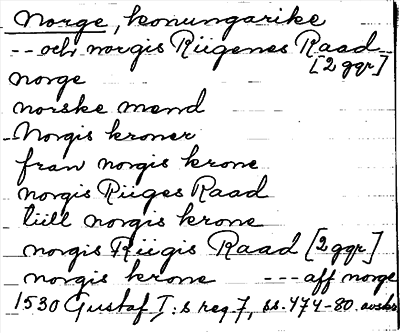 Norge, konungarike
-- och norgis Riigenes Raad
[2 ggr]
norge
norske mend
Norgis kroner
fran norgis krone
norgis Riiges Raad
tiill norgis krone
norgis Riigis Raad [2 ggr]
norgis krone --- aff norge
1530 Gustaf I:s reg 7, ss. 474-80. avskr